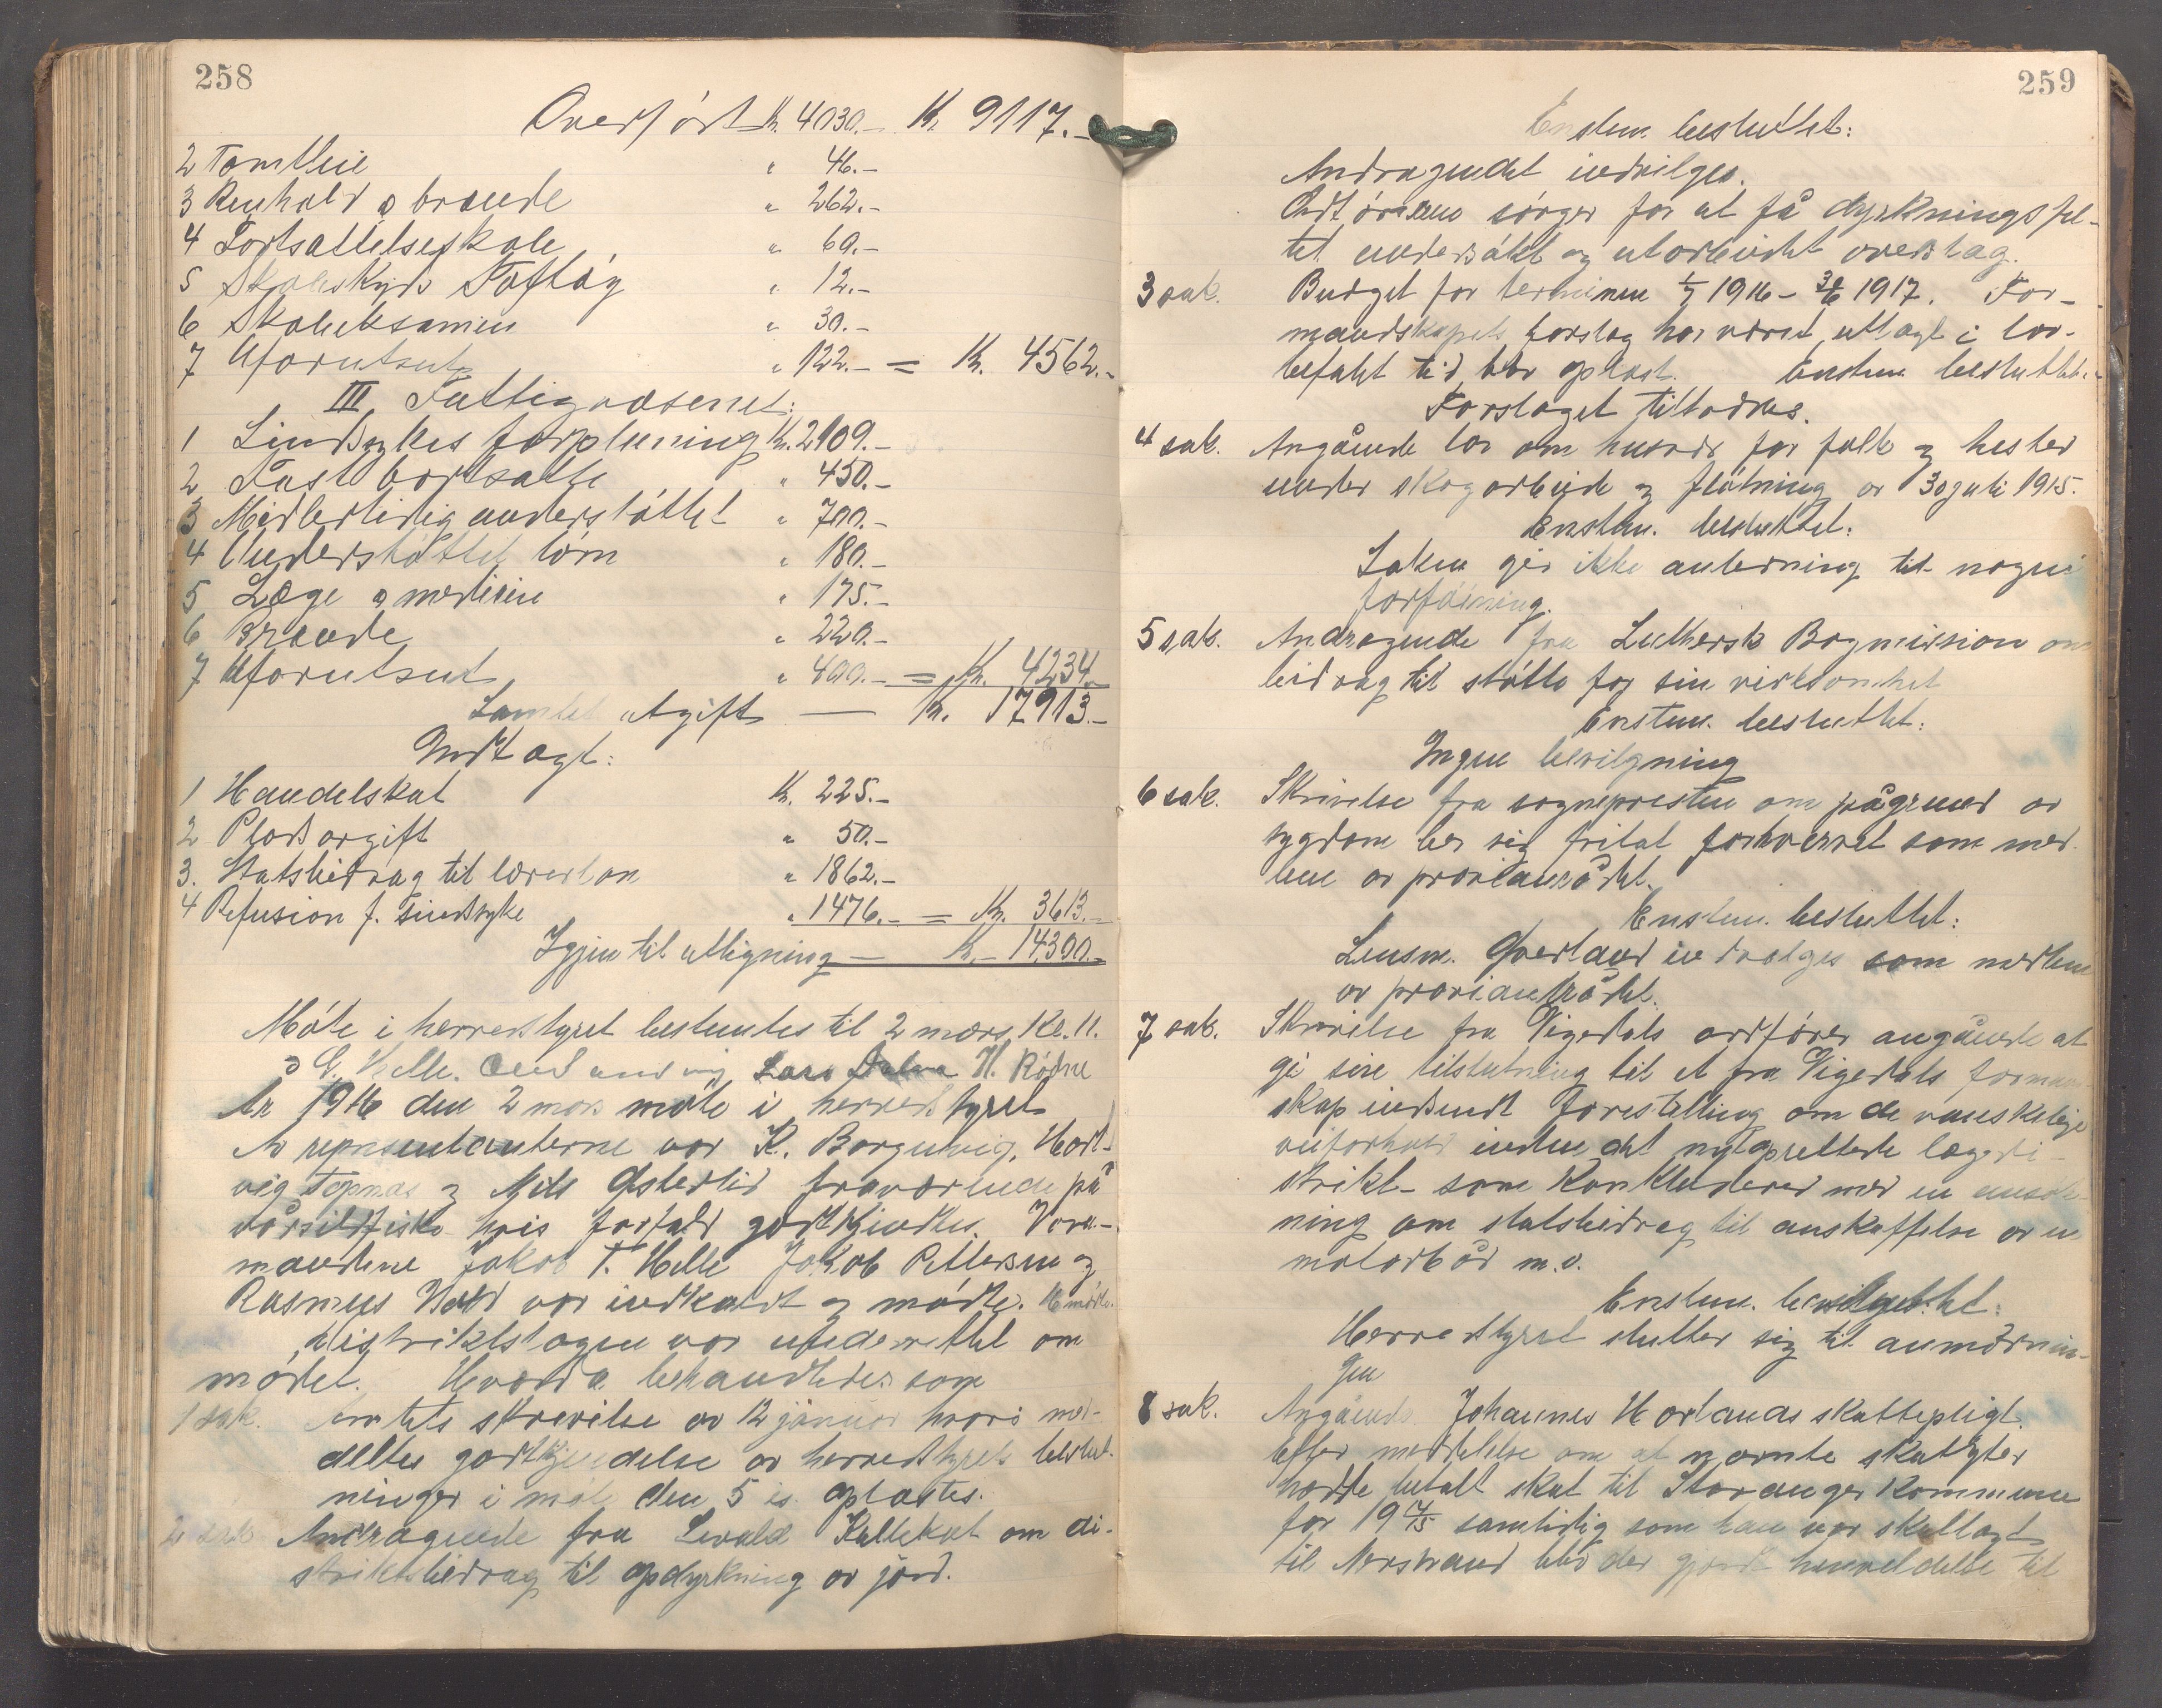 258
Overført Kr. 4030.- Kr. 9117.-
2 Tomtleie " 46.-
3 Renhold o brænde " 262.-
4 Fortsættelsesskole " 60.-
5 Skoleskyds Toftøy " 12.-
6 Skoleeksamen " 30.-
7 Uforutset " 122.- = Kr. 4562.-
III Fattigvæsenet:
1 Sindssykes forpleining Kr. 2109.-
2 Fast bortsatte " 450.-
3 Midlertidig understøttet " 700.-
4 Understøttet børn " 180.-
5 Læge o medisin " 175.-
6 Brænde " 220.-
7 Uforutset " 400.- = Kr. 4234.-
Samlet utgift — Kr. 17913.-
Indtægt:
1 Handelskat Kr. 225.-
2 Pladsavgift " 50.-
3. Statsbidrag til lærerløn " 1862.-
4 Refusion f. sindssyke " 1476.- = Kr. 3613.-
Igjen til utligning — Kr. 14300.-
Møte i herredstyret bestemtes til 2 mars Kl. 11.
Helle. Lars H. Rødne
År 1916 den 2 mars møte i herredstyret
Av representanterne var K. Borgenvig, Hart-
vig Tøpnæs og Nils Østerlid fraværende på
vårsildfiske hvis forfald godkjendtes. Vara-
mændene Jakob T. Helle Jakob Pettersen og
Rasmus Hald var indkaldt og mødte.
Distriktslægen var underrettet om
mødet. Hvorda behandledes som
1 sak. Amtets skrivelse av 12 januar hvori med-
deltes godkjendelse av herredstyrets beslut-
ninger i møte den 5 s. oplæstes.
2 sak Andragende fra Sevald Kallekot om di-
striktsbidrag til opdyrkning av jord.
259
Enstem. besluttet:
Andragendet indvilges.
Ordføreren sørger for at få dyrkningsfel-
tet undersøkt og utarbeidet overslag.
3 sak. Budget for terminen 1/7 1916 - 30/6 1917. For-
mandskapets forslag har været utlagt i lov-
befalt tid blev oplæst. Enstem. besluttet:
Forslaget tiltrædes.
4 sak. Angående lov om husvær for folk og hester
under skogarbeide og fløtning av 30 juli 1915.
Enstem. besluttet:
Saken gir ikke anledning til nogen
forføining.
5 sak. Andragende fra Luthersk Bogmission om
bidrag til støtte for sin virksomhet
Enstem. besluttet:
Ingen bevilgning
6 sak. Skrivelse fra sognepresten om på grund av
sygdom ber sig fritat for hvervet som med-
lem av proviantrådet.
Enstem. besluttet:
Lensm. Øverland indvælges som medlem
av proviantrådet.
7 sak. Skrivelse fra Vigedals ordfører angående at
gi sin tilslutning til et fra Vigedals formand-
skap indsendt forestilling om de vanskelige
veiforhold inden det nyoprettede lægedi-
strikt - som konkluderer med en ansøk-
ning om statsbidrag til anskaffelse av en
motorbåd m.v.
Enstem. besluttet:
Herredstyret slutter sig til anmodnin-
gen
8 sak. Angående Johannes Hovlands skattepligt.
Efter meddelelse om at nævnte skatyter
hadde betalt skat til Stavanger Kommune
for 19 14/15 samtidig som han var skatlagt
til Nerstrand blev der gjort henvendelse til